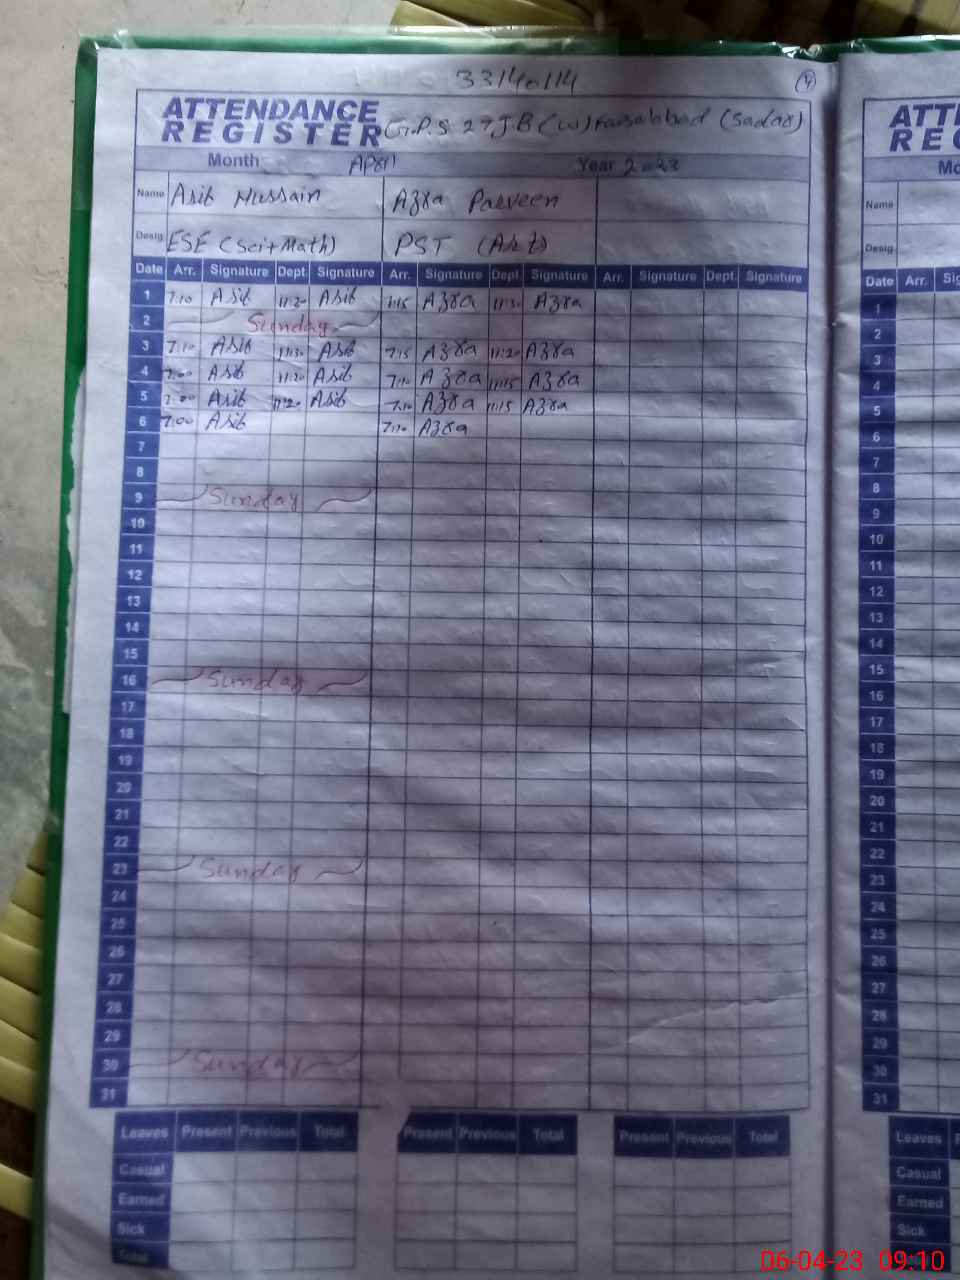 33140114
4
ATTENDANCE
REGISTER G.P.S 27 J.B (W) Faisalabad (Sadar)
Month April Year 2023
Name Asib Hussain Azra Parveen
Desig. ESE (Sci+Math) PST (Arts)
Date Arr. Signature Dept. Signature Arr. Signature Dept. Signature Arr. Signature Dept. Signature
1 7:10 Asib 11:20 Asib 7:15 Azra 11:30 Azra
2 Sunday
3 7:10 Asib 11:30 Asib 7:15 Azra 11:20 Azra
4 7:00 Asib 11:20 Asib 7:10 Azra 11:15 Azra
5 7:00 Asib 11:20 Asib 7:10 Azra 11:15 Azra
6 7:00 Asib 7:10 Azra
7
8
9 Sunday
10
11
12
13
14
15
16 Sunday
17
18
19
20
21
22
23 Sunday
24
25
26
27
28
29
30 Sunday
31
Leaves Present Previous Total Present Previous Total Present Previous Total
Casual
Earned
Sick
Total
Name
Desig.
Date Arr.
1
2
3
4
5
6
7
8
9
10
11
12
13
14
15
16
17
18
19
20
21
22
23
24
25
26
27
28
29
30
31
Leaves
Casual
Earned
Sick
06-04-23 09:10